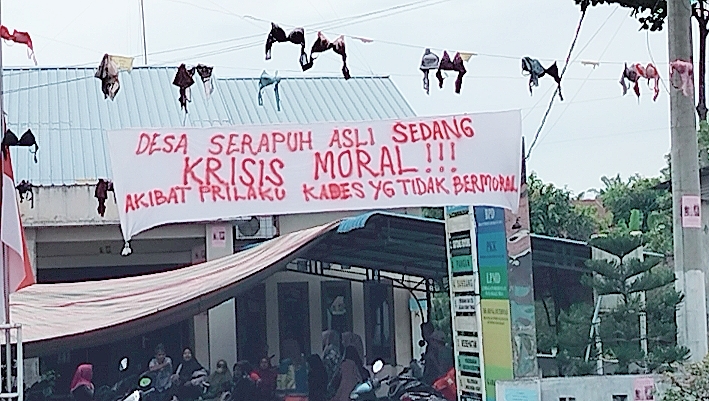 DESA SERAPUH ASLI SEDANG
KRISIS MORAL!!!
AKIBAT PRILAKU KADES YG TIDAK BERMORAL
BPD
PKK
LPMD